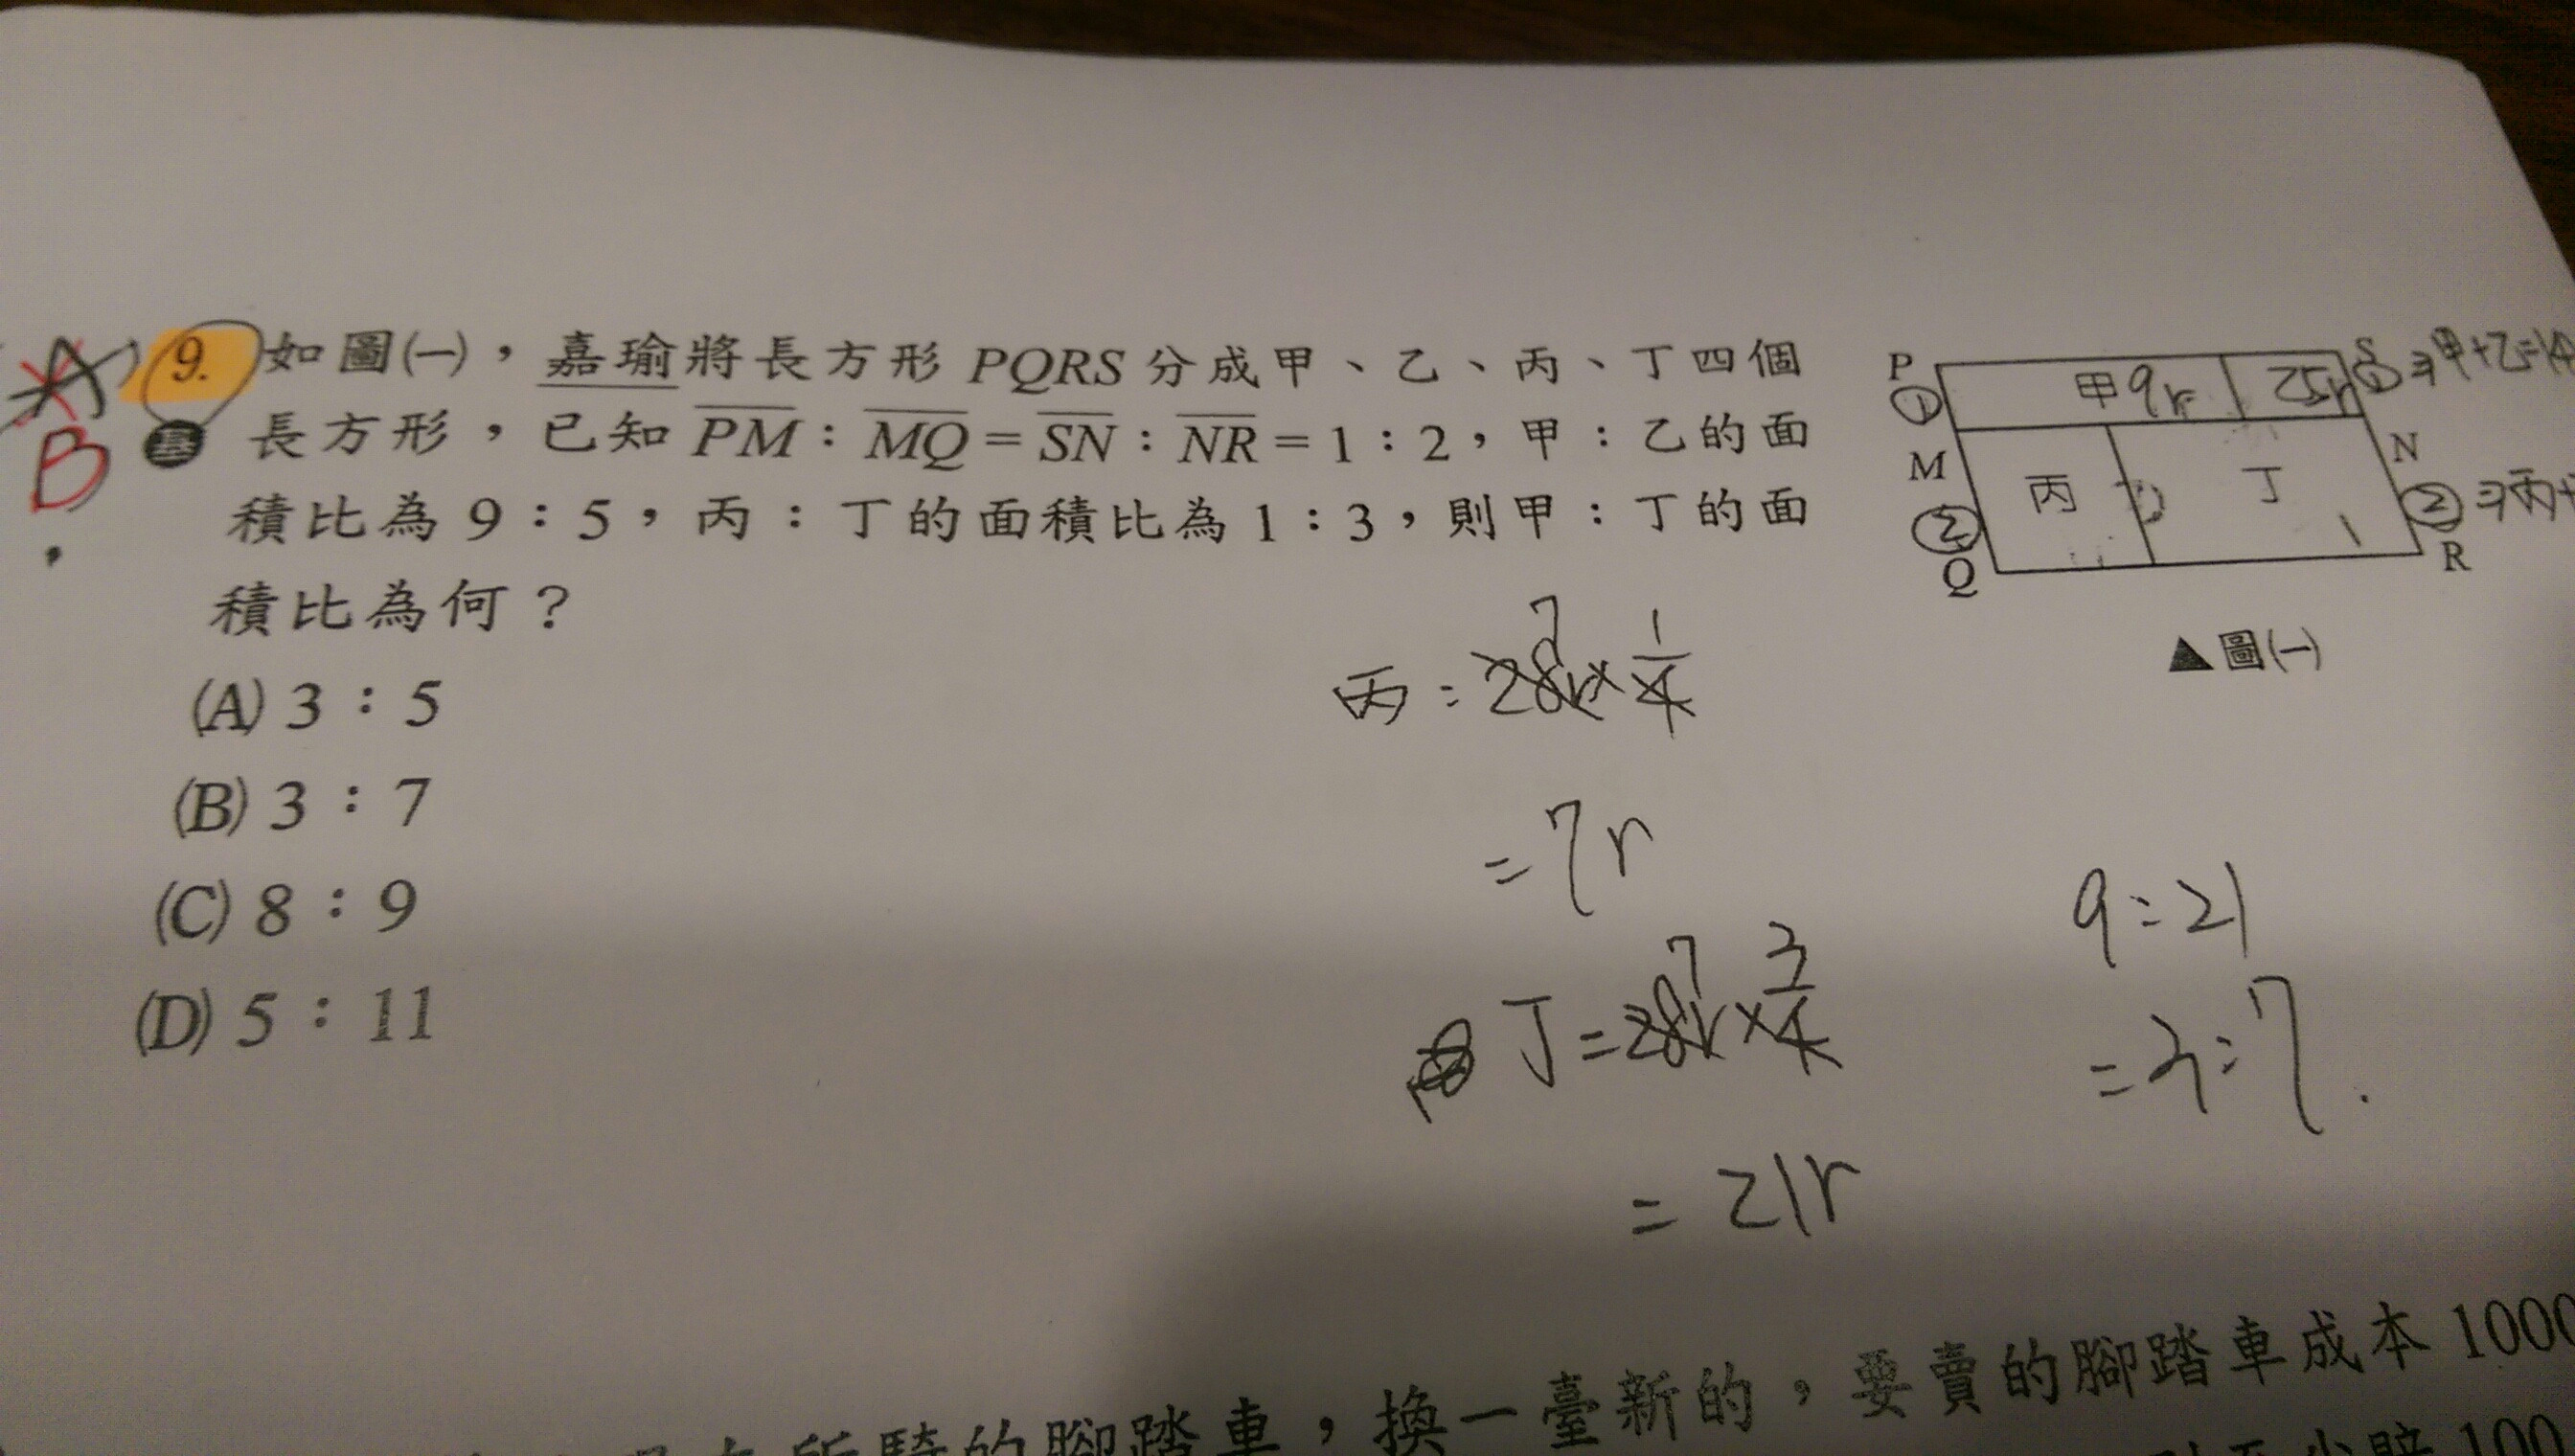 A
B
9. 如圖(一)，嘉瑜將長方形 PQRS 分成甲、乙、丙、丁四個
基 長方形，已知 PM：MQ＝SN：NR＝1：2，甲：乙的面
積比為 9：5，丙：丁的面積比為 1：3，則甲：丁的面
積比為何？
(A) 3：5
(B) 3：7
(C) 8：9
(D) 5：11
P S
① 甲 9r 乙5r ① ⇒甲+乙=14
M N
② 丙 丁 ② ⇒丙+
Q R
▲圖(一)
丙 = 28r × 1/4
7
= 7r
丁 = 28r × 3/4
7
= 21r
9:21
= 3:7.
所騎的腳踏車，換一臺新的，要賣的腳踏車成本 1000
100